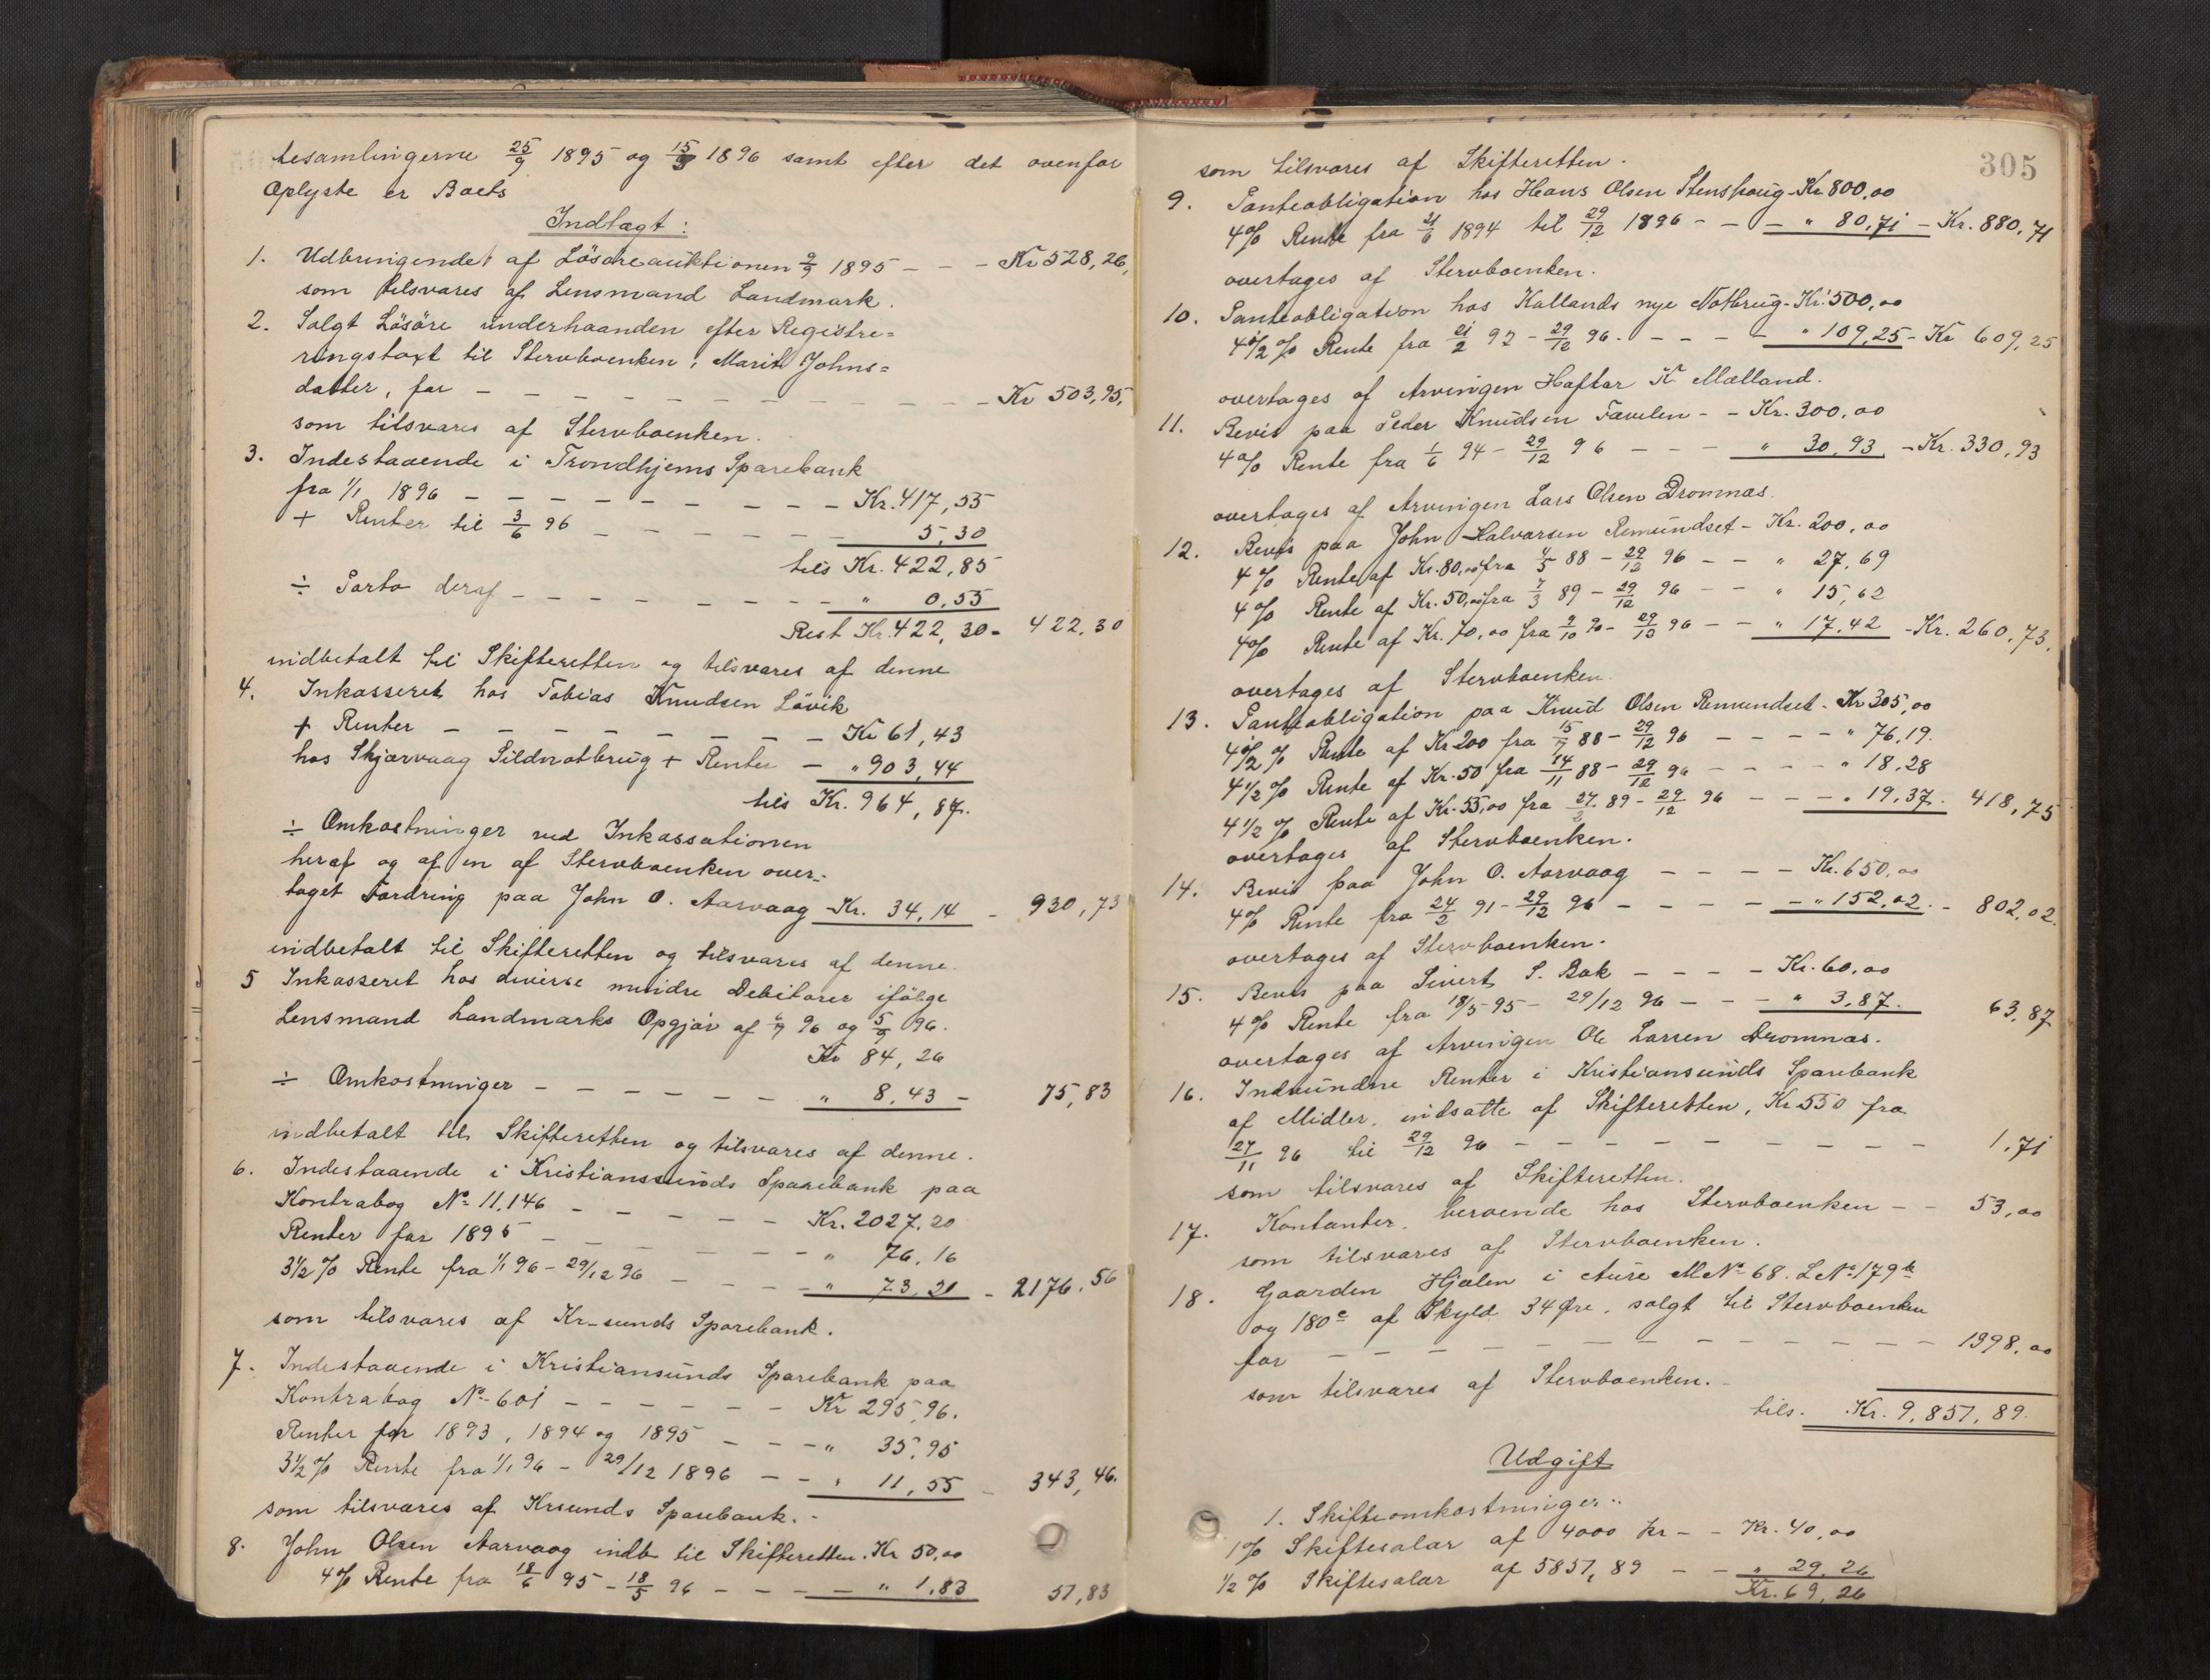 tesamlingerne 25/9 1895 og 15/9 1896 samt efter det ovenfor
Oplyste er Boets
Indtægt:
1. Udbringendet af Løsøreauktionen 9/9 1895 - - - Kr 528,26,
som tilsvares af Lensmand Landmark.
2. Solgt Løsøre underhaanden efter Registre=
ringstaxt til Stervboenken, Marit Johns=
datter, for - - - - - - - - - - - - Kr 503,95,
som tilsvares af Stervboenken.
3. Indestaaende i Trondhjems Sparebank
fra 1/1 1896 - - - - - - - - Kr. 417,55
+ Renter til 3/6 96 - - - - - - 5,30
tils Kr. 422,85
÷ Porto deraf - - - - - - - - " 0,55
Rest Kr. 422,30 - 422,30
indbetalt til Skifteretten og tilsvares af denne
4. Inkasseret hos Tobias Knudsen Løvik
+ Renter - - - - - - - - Kr 61,43
hos Skjærvaag Sildnotbrug + Renter - " 903,44
tils Kr. 964,87.
÷ Omkostninger ved Inkassationen
heraf og af en af Stervboenken over-
taget Fordring paa John O. Aarvaag - Kr. 34,14 - 930,73
indbetalt til Skifteretten og tilsvares af denne.
5 Inkasseret hos diverse mindre Debitorer ifølge
Lensmand Landmarks Opgjør af 6/7 96 og 5/9 96.
Kr 84,26
÷ Omkostninger - - - - - - " 8,43 - 75,83
indbetalt til Skifteretten og tilsvares af denne.
6. Indestaaende i Kristianssunds Sparebank paa
Kontrabog No 11.146 - - - - - Kr. 2027,20
Renter for 1895 - - - - - - - " 76,16
3 1/2 % Rente fra 1/1 96 - 29/12 96 - - - - " 73,20 - 2176,56
som tilsvares af Kr-sunds Sparebank.
7. Indestaaende i Kristiansunds Sparebank paa
Kontrabog No 601 - - - - - - Kr 295,96.
Renter for 1893, 1894 og 1895 - - - " 35,95
3 1/2 % Rente fra 1/1 96 - 29/12 1896 - - " 11,55 - 343,46.
som tilsvares af Krsunds Sparebank. -
8. John Olsen Aarvaag indb til Skifteretten. Kr 50,00
4 % Rente fra 18/6 95 - 18/5 96 - - - - " 1,83 51,83
305
som tilsvares af Skifteretten.
9. Panteobligation hos Hans Olsen Stenshaug - Kr 800,00
4 % Rente fra 21/6 1894 til 29/12 1896 - - - " 80,71 - Kr. 880,71
overtages af Stervboenken.
10. Panteobligation hos Kallands nye Notbrug - Kr. 500,00
4 1/2 % Rente fra 21/2 92 - 29/12 96. - - - - " 109,25 - Kr 609,25
overtages af Arvingen Haftor K Mælland.
11. Bevis paa Peder Knudsen Tævelen - - Kr. 300,00
4 % Rente fra 1/6 94 - 29/12 96 - - - " 30,93 - Kr. 330,93
overtages af Arvingen Lars Olsen Dromnæs.
12. Bevis paa John Halvorsen Remundset - Kr. 200,00
4 % Rente af Kr. 80,00 fra 4/5 88 - 29/12 96 - - " 27,69
4 % Rente af Kr. 50,00 fra 7/3 89 - 29/12 96 - - " 15,62
4 % Rente af Kr. 70,00 fra 9/10 90 - 29/12 96 - - " 17,42 - Kr. 260,73.
overtages af Stervboenken.
13. Panteobligation paa Knud Olsen Remundset - Kr 305,00
4 1/2 % Rente af Kr 200 fra 15/7 88 - 29/12 96 - - - - " 76,19.
4 1/2 % Rente af Kr. 50 fra 14/11 88 - 29/12 96 - - - - " 18,28
4 1/2 % Rente af Kr. 55,00 fra 27/2 89 - 29/12 96 - - - " 19,37. 418,75
overtages af Stervboenken.
14. Bevis paa John O. Aarvaag - - - - Kr. 650,00
4 % Rente fra 24/2 91 - 29/12 96 - - - - - " 152,02. - 802,02.
overtages af Stervboenken.
15. Bevis paa Sivert S. Bak - - - - Kr. 60,00
4 % Rente fra 18/5 95 - 29/12 96 - - - " 3,87. 63,87
overtages af Arvingen Ole Larsen Dromnæs.
16. Indvundne Renter i Kristiansunds Sparebank
af Midler, indsatte af Skifteretten, Kr 550 fra
27/11 96 til 29/12 96 - - - - - - - - - 1,71
som tilsvares af Skifteretten.
17. Kontanter, beroende hos Stervboenken - - 53,00
som tilsvares af Stervboenken.
18. Gaarden Hjælen i Aure M No 68. L No 179 b
og 180 c af Skyld 34 Øre, solgt til Stervboenken
for - - - - - - - - - - - 1998,00
som tilsvares af Stervboenken. -
tils. Kr. 9,851,89.
Udgift
1. Skifteomkostninger:
1 % Skiftesalær af 4000 kr - - Kr. 40,00
1/2 % Skiftesalær af 5851,89 - - " 29,26
Kr. 69,26